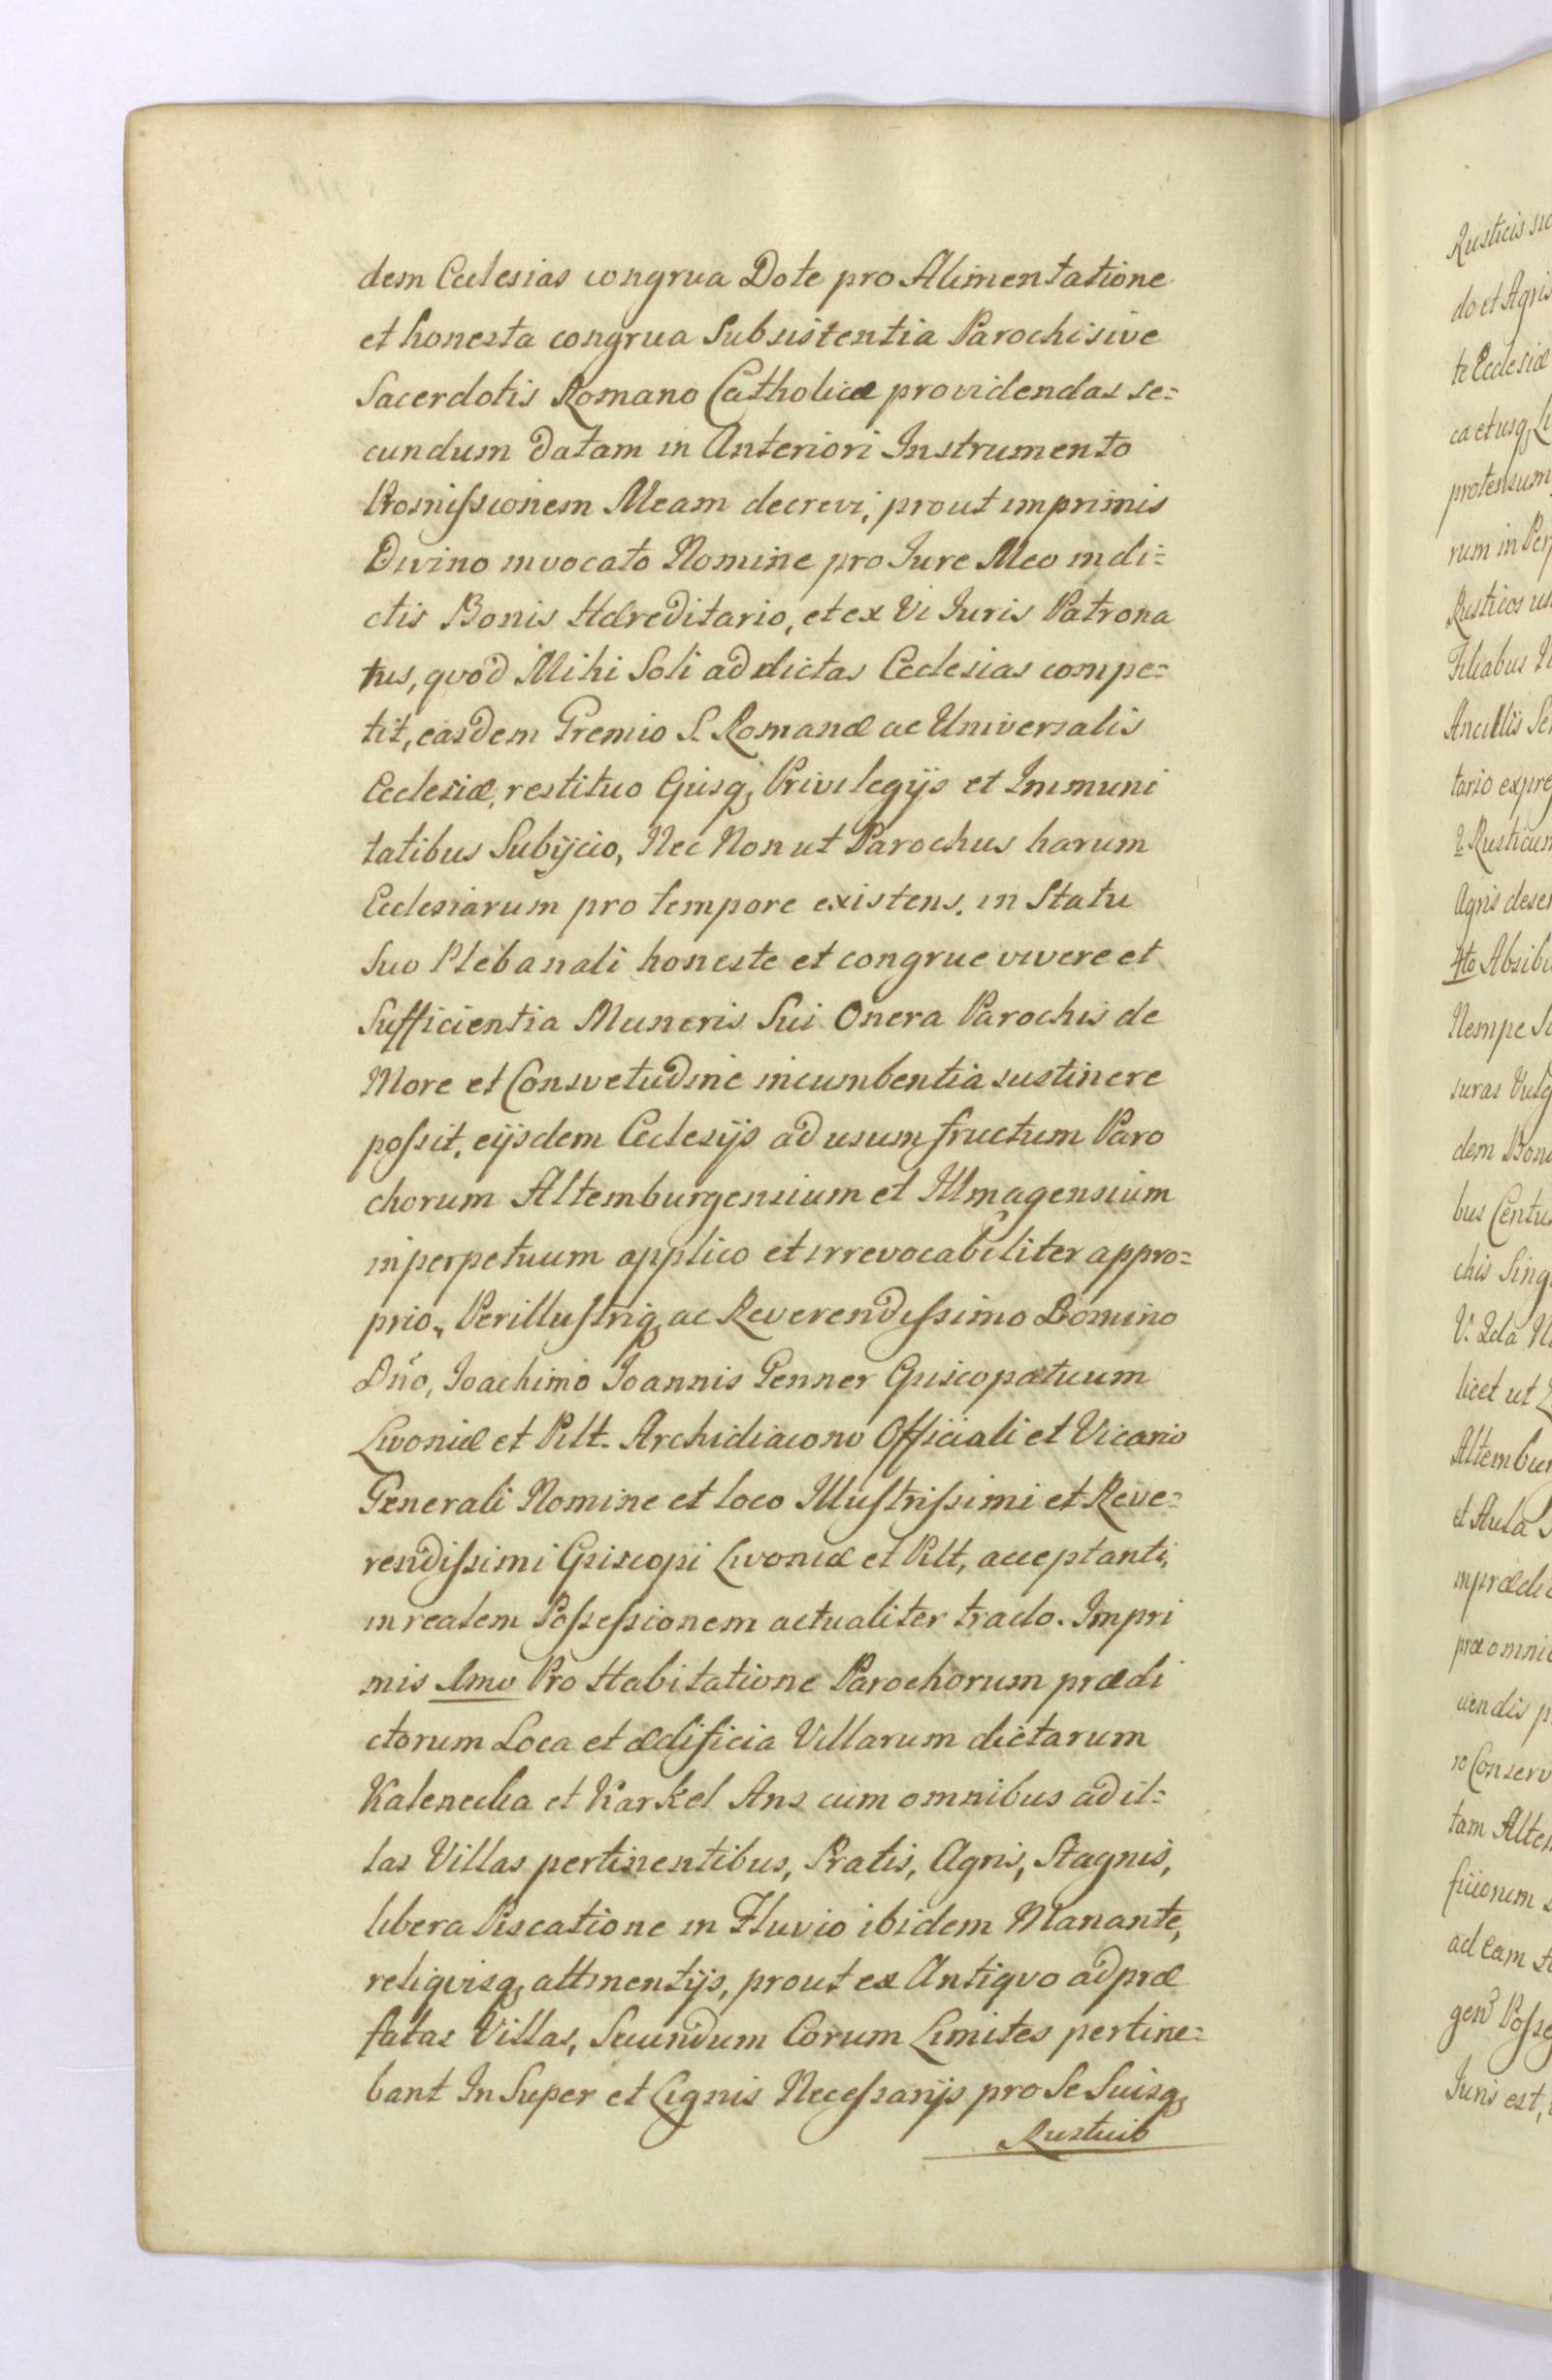 dem Ecclesias congrua Dote pro Alimentatione
et honesta congrua Subsistentia Parochi sive
Sacerdotis Romano Catholicæ providendas se=
cundum datam in Anteriori Instrumento
Promissionem Meam decrevi, prout imprimis
Divino invocato Nomine pro Jure Meo in di=
ctis Bonis Hæreditario, et ex Vi Juris Patrona
tus, qvod Mihi Soli ad dictas Ecclesias compe=
tit, easdem Gremio S. Romanæ ac Universalis
Ecclesiæ, restituo Ejusq, Privilegijs et Immuni
tatibus Subijcio, Nec Non ut Parochus harum
Ecclesiarum pro tempore existens, in Statu
Suo Plebanali honeste et congrue vivere et
Sufficientia Muneris Sui Onera Parochis de
More et Consvetudine incumbentia sustinere
possit, eijsdem Ecclesijs ad usum fructum Paro
chorum Altemburgensium et Illmagensium
in perpetuum applico et irrevocabiliter appro=
prio, Perillustriq, ac Reverendissimo Domino
Dño, Joachimo Joannis Genner Episcopatuum
Livoniæ et Pilt. Archidiacono Officiali et Vicario
Generali Nomine et loco Illustrissimi et Reve=
rendissimi Episcopi Livoniæ et Pilt, acceptanti,
in realem Possessionem actualiter trado. Impri
mis 1mo Pro Habitatione Parochorum prædi
ctorum Loca et ædificia Villarum dictarum
Kalenecka et Karkel Ans cum omnibus ad il=
las Villas pertinentibus, Pratis, Agris, Stagnis,
libera Piscatione in Fluvio ibidem Manante,
reliqvisq, attinentijs, prout ex Antiqvo ad præ
fatas Villas, Secundum Eorum Limites pertine=
bant In Super et Lignis Necessarijs pro Se Suisq,
Rusticis
Rusticis
do et Agris
te Ecclesiæ
ca et usq,
protensum
rum in
Rusticos
Filiabus
Ancillis
tario
2. Rusticum
Agris
4to
Nempe
suras
dem
bus
chis
V. 2da
licet ut
et Aula
præ
tam
ad Eam
Juris est,